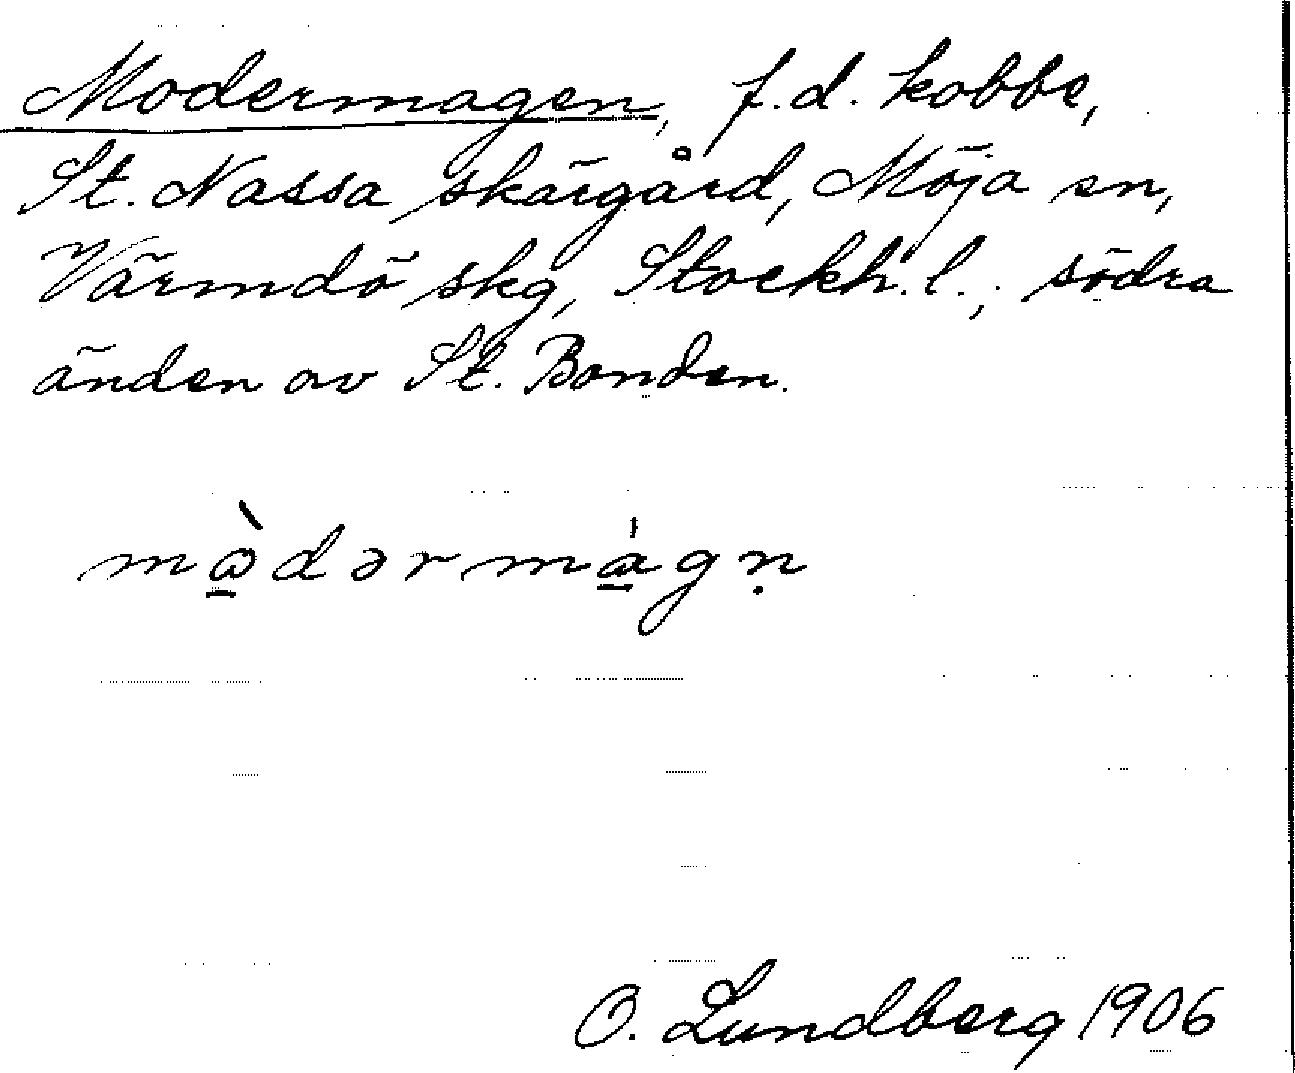 Modermagen, f.d. kobbe,
St. Nassa skärgård, Möja sn,
Värmdö skg, Stockh. l., södra
änden av St. Bonden.
mὼ̲dərma̲̍gṇ
O. Lundberg 1906